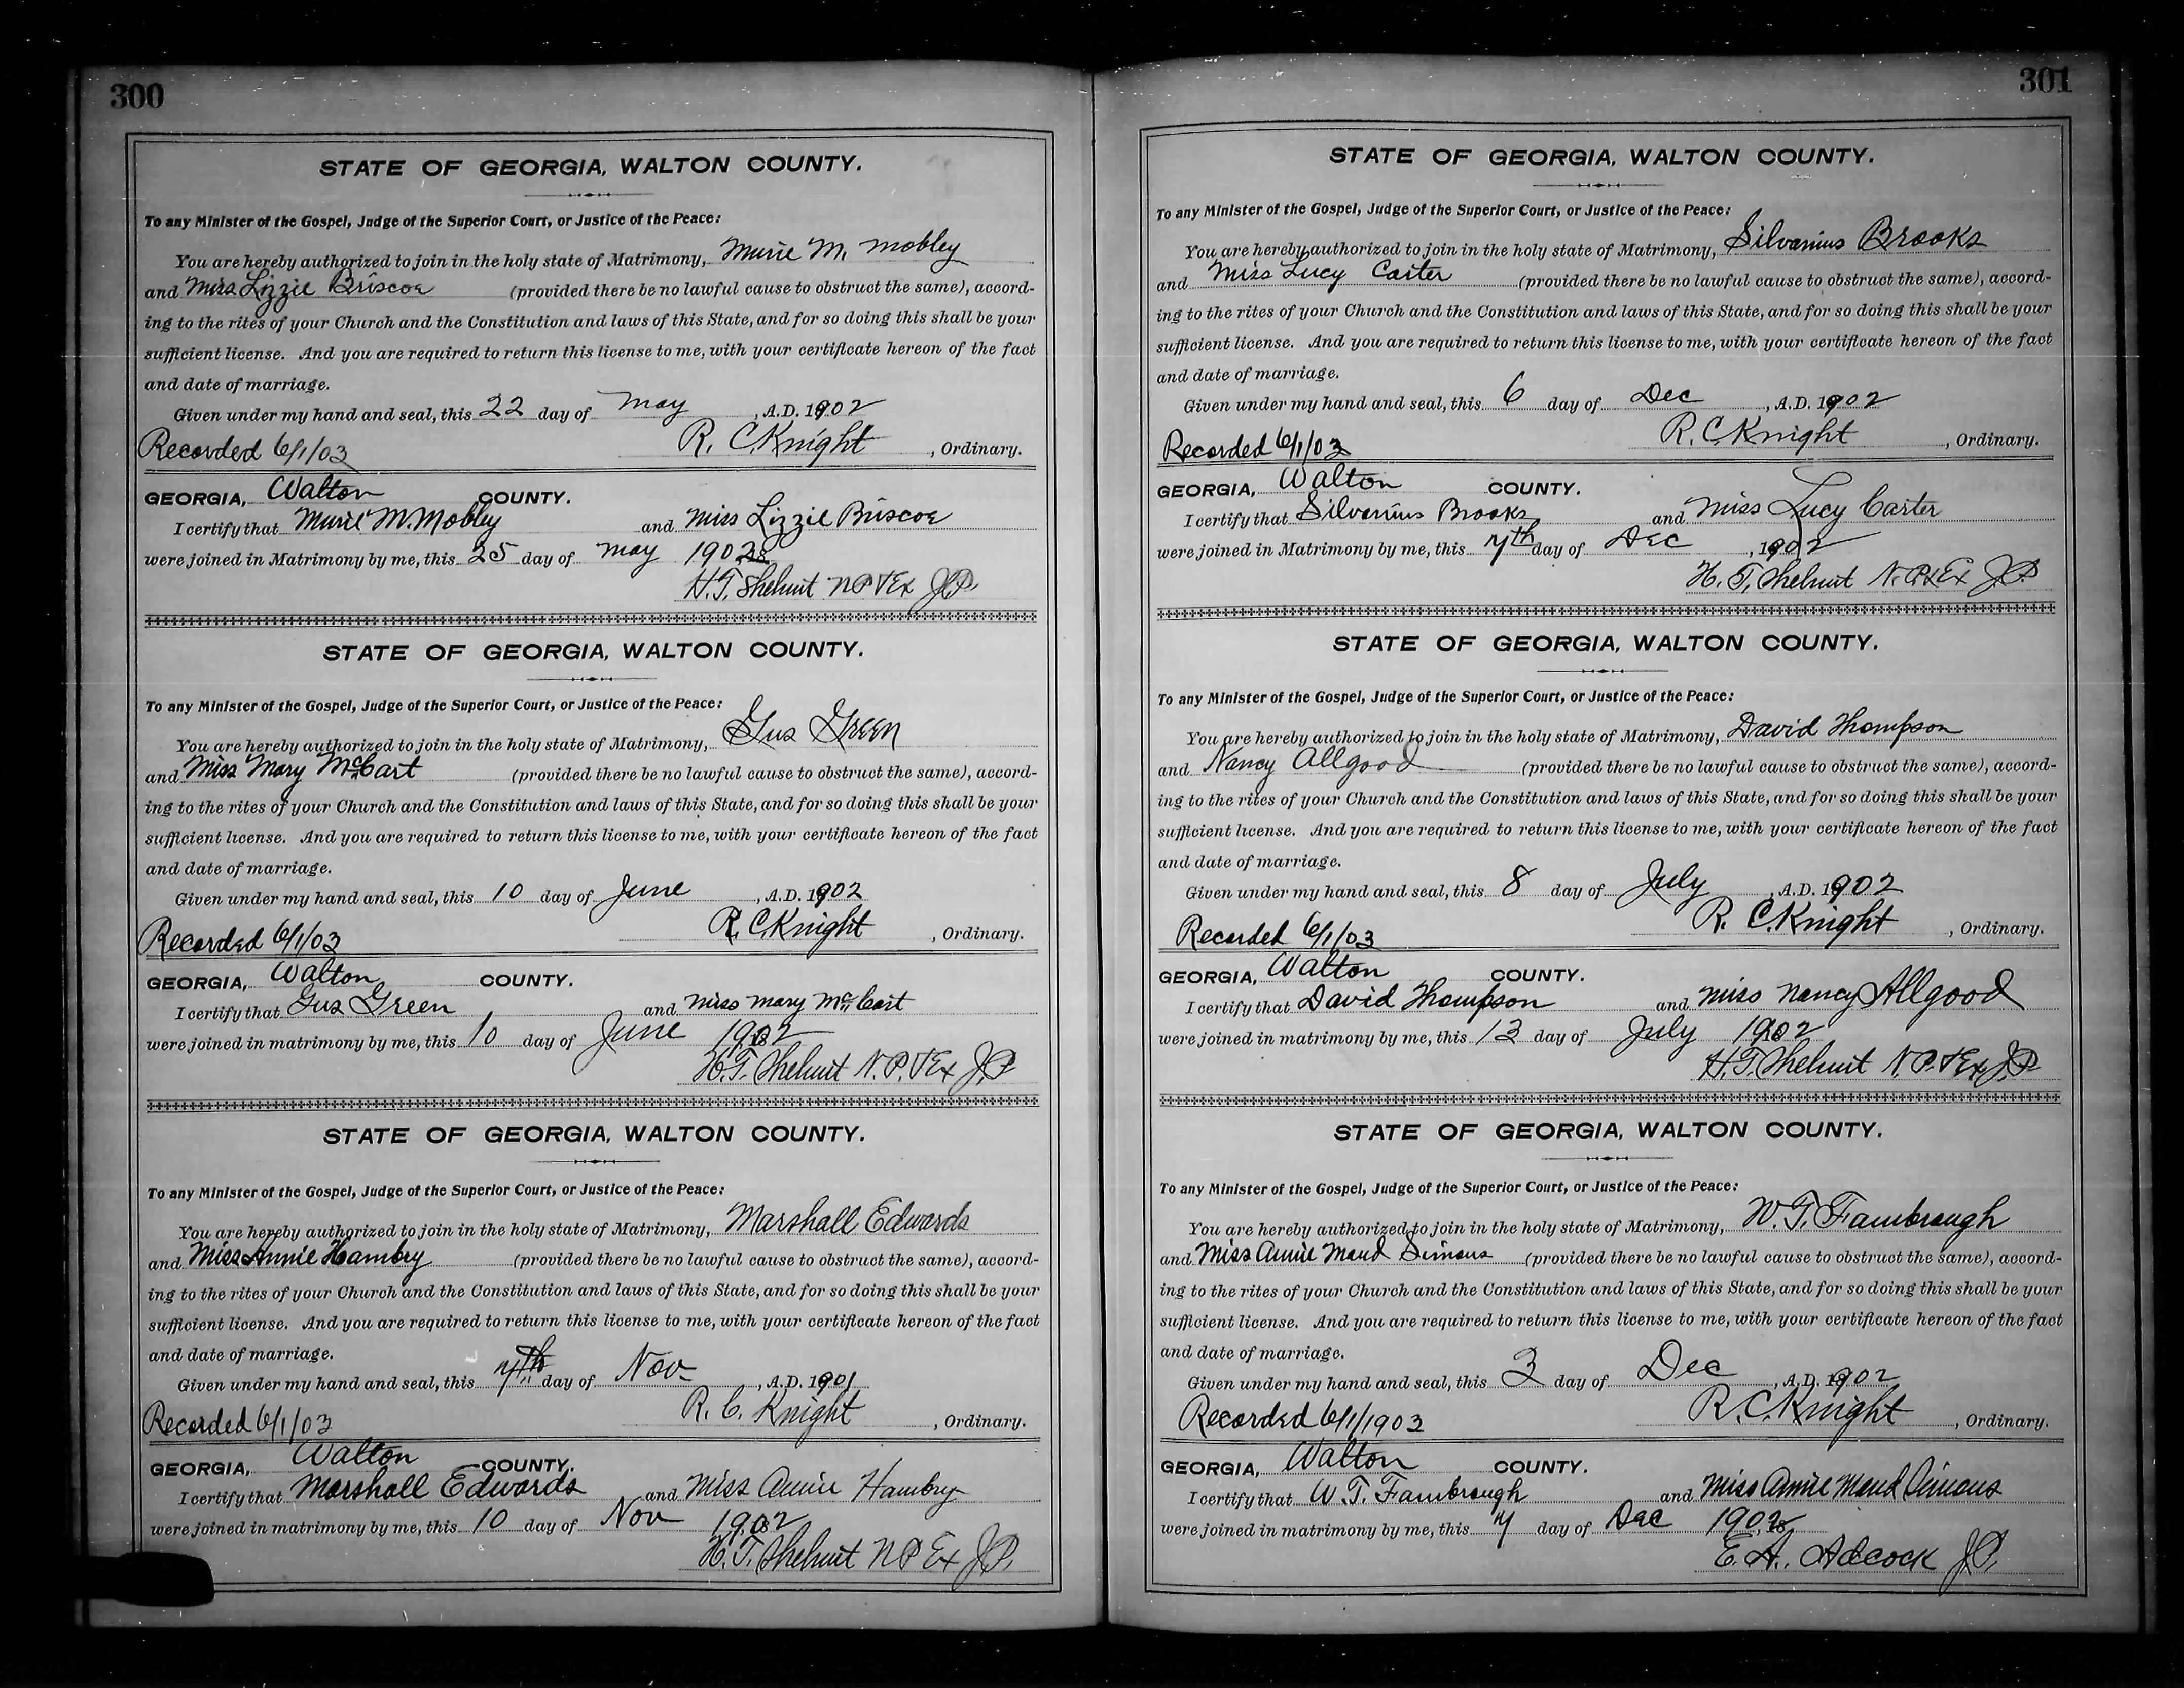 300
STATE OF GEORGIA, WALTON COUNTY.
To any Minister of the Gospel, Judge of the Superior Court, or Justice of the Peace:
You are hereby authorized to join in the holy state of Matrimony, M. Mobley
and Miss Lizzie Briscoe (provided there be no lawful cause to obstruct the same), accord-
ing to the rites of your Church and the Constitution and laws of this State, and for so doing this shall be your
sufficient license. And you are required to return this license to me, with your certificate hereon of the fact
and date of marriage.
Given under my hand and seal, this 22 day of May, A.D. 1902
R. C. Knight, Ordinary.
Recorded 6/1/03
GEORGIA, Walton COUNTY.
I certify that M. Mobley and Miss Lizzie Briscoe
were joined in Matrimony by me, this 25 day of May 1902
H. T. Shehut N P & Ex J P
STATE OF GEORGIA, WALTON COUNTY.
To any Minister of the Gospel, Judge of the Superior Court, or Justice of the Peace:
You are hereby authorized to join in the holy state of Matrimony, Gus Green
and Miss Mary McCart (provided there be no lawful cause to obstruct the same), accord-
ing to the rites of your Church and the Constitution and laws of this State, and for so doing this shall be your
sufficient license. And you are required to return this license to me, with your certificate hereon of the fact
and date of marriage.
Given under my hand and seal, this 10 day of June, A.D. 1902
R. C. Knight, Ordinary.
Recorded 6/1/03
GEORGIA, Walton COUNTY.
I certify that Gus Green and Miss Mary McCart
were joined in matrimony by me, this 10 day of June 1902
H. T. Shehut N. P. & Ex J. P.
STATE OF GEORGIA, WALTON COUNTY.
To any Minister of the Gospel, Judge of the Superior Court, or Justice of the Peace:
You are hereby authorized to join in the holy state of Matrimony, Marshall Edwards
and Miss Annie Hambry (provided there be no lawful cause to obstruct the same), accord-
ing to the rites of your Church and the Constitution and laws of this State, and for so doing this shall be your
sufficient license. And you are required to return this license to me, with your certificate hereon of the fact
and date of marriage.
Given under my hand and seal, this 7th day of Nov, A.D. 1901
R. C. Knight, Ordinary.
Recorded 6/1/03
GEORGIA, Walton COUNTY.
I certify that Marshall Edwards and Miss Annie Hambry
were joined in matrimony by me, this 10 day of Nov 1902
H. T. Shehut N P Ex J. P.
301
STATE OF GEORGIA, WALTON COUNTY.
To any Minister of the Gospel, Judge of the Superior Court, or Justice of the Peace:
You are hereby authorized to join in the holy state of Matrimony, Silvanius Brooks
and Miss Lucy Carter (provided there be no lawful cause to obstruct the same), accord-
ing to the rites of your Church and the Constitution and laws of this State, and for so doing this shall be your
sufficient license. And you are required to return this license to me, with your certificate hereon of the fact
and date of marriage.
Given under my hand and seal, this 6 day of Dec, A.D. 1902
R. C. Knight, Ordinary.
Recorded 6/1/03
GEORGIA, Walton COUNTY.
I certify that Silvanius Brooks and Miss Lucy Carter
were joined in Matrimony by me, this 7th day of Dec, 1902
H. T. Shehut N. P. & Ex J P
STATE OF GEORGIA, WALTON COUNTY.
To any Minister of the Gospel, Judge of the Superior Court, or Justice of the Peace:
You are hereby authorized to join in the holy state of Matrimony, David Thompson
and Nancy Allgood (provided there be no lawful cause to obstruct the same), accord-
ing to the rites of your Church and the Constitution and laws of this State, and for so doing this shall be your
sufficient license. And you are required to return this license to me, with your certificate hereon of the fact
and date of marriage.
Given under my hand and seal, this 8 day of July, A.D. 1902
R. C. Knight, Ordinary.
Recorded 6/1/03
GEORGIA, Walton COUNTY.
I certify that David Thompson and Miss Nancy Allgood
were joined in matrimony by me, this 13 day of July 1902
H. T. Shehut N. P. & Ex J. P.
STATE OF GEORGIA, WALTON COUNTY.
To any Minister of the Gospel, Judge of the Superior Court, or Justice of the Peace:
You are hereby authorized to join in the holy state of Matrimony, W. T. Fambrough
and Miss Annie Maud Simons (provided there be no lawful cause to obstruct the same), accord-
ing to the rites of your Church and the Constitution and laws of this State, and for so doing this shall be your
sufficient license. And you are required to return this license to me, with your certificate hereon of the fact
and date of marriage.
Given under my hand and seal, this 3 day of Dec, A.D. 1902
R. C. Knight, Ordinary.
Recorded 6/1/1903
GEORGIA, Walton COUNTY.
I certify that W. T. Fambrough and Miss Annie Maud Simons
were joined in matrimony by me, this 7 day of Dec 1902
E. A. Adcock J. P.